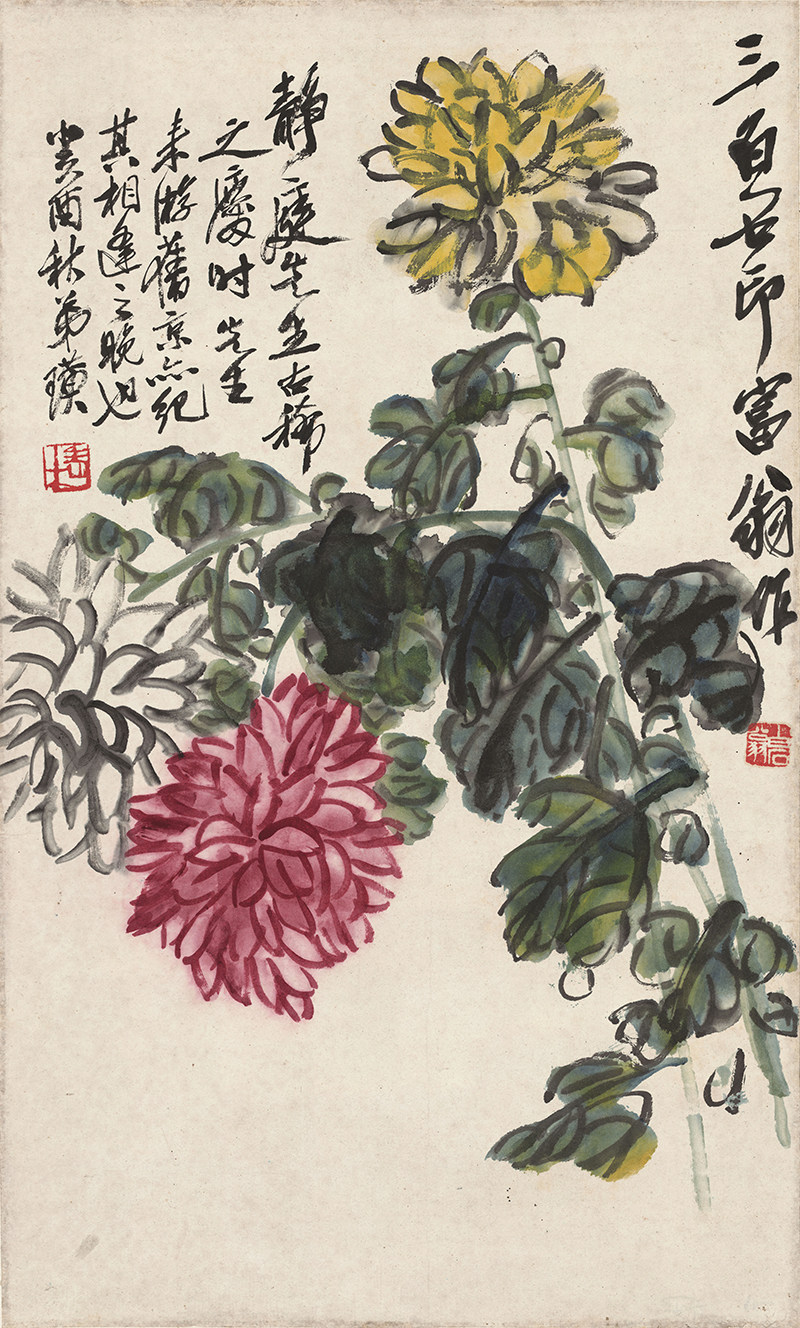 三百石印富翁作
靜庭先生古稀
之慶時先生
来游舊京亦紀
其相逢之晚也
癸酉秋弟璜